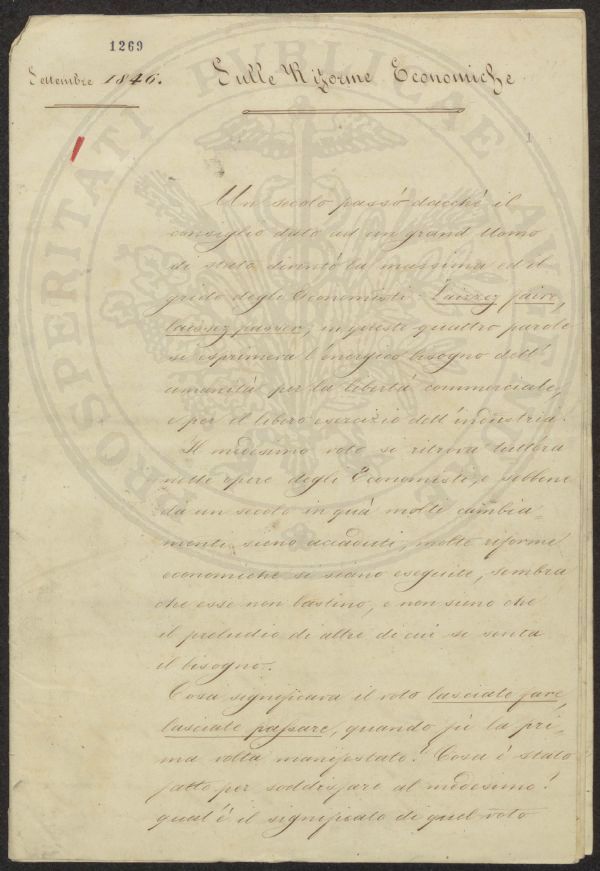 1269
Settembre 1846.
Sulle Riforme Economiche
1
Un secolo passò dacchè il
consiglio dato ad un grand'Uomo
di stato diventò la massima ed il
grido degli Economisti: Laissez faire,
laissez passer; in queste quattro parole
si esprimeva l'energico bisogno dell'
umanità per la libertà commerciale,
e per il libero esercizio dell'industria.
Il medesimo voto si ritrova tuttora
nelle opere degli Economisti, e sebbene
da un secolo in quà molti cambia-
menti sieno accaduti, molte riforme
economiche si siano eseguite, sembra
che esse non bastino, e non sieno che
il preludio di altre di cui si senta
il bisogno.
Cosa significava il voto lasciate fare,
lasciate passare, quando fù la pri-
ma volta manifestato? Cosa è stato
fatto per soddisfare al medesimo?
qual'è il significato di quel voto
PROSPERITATI PVBLICAE AVGENDAE